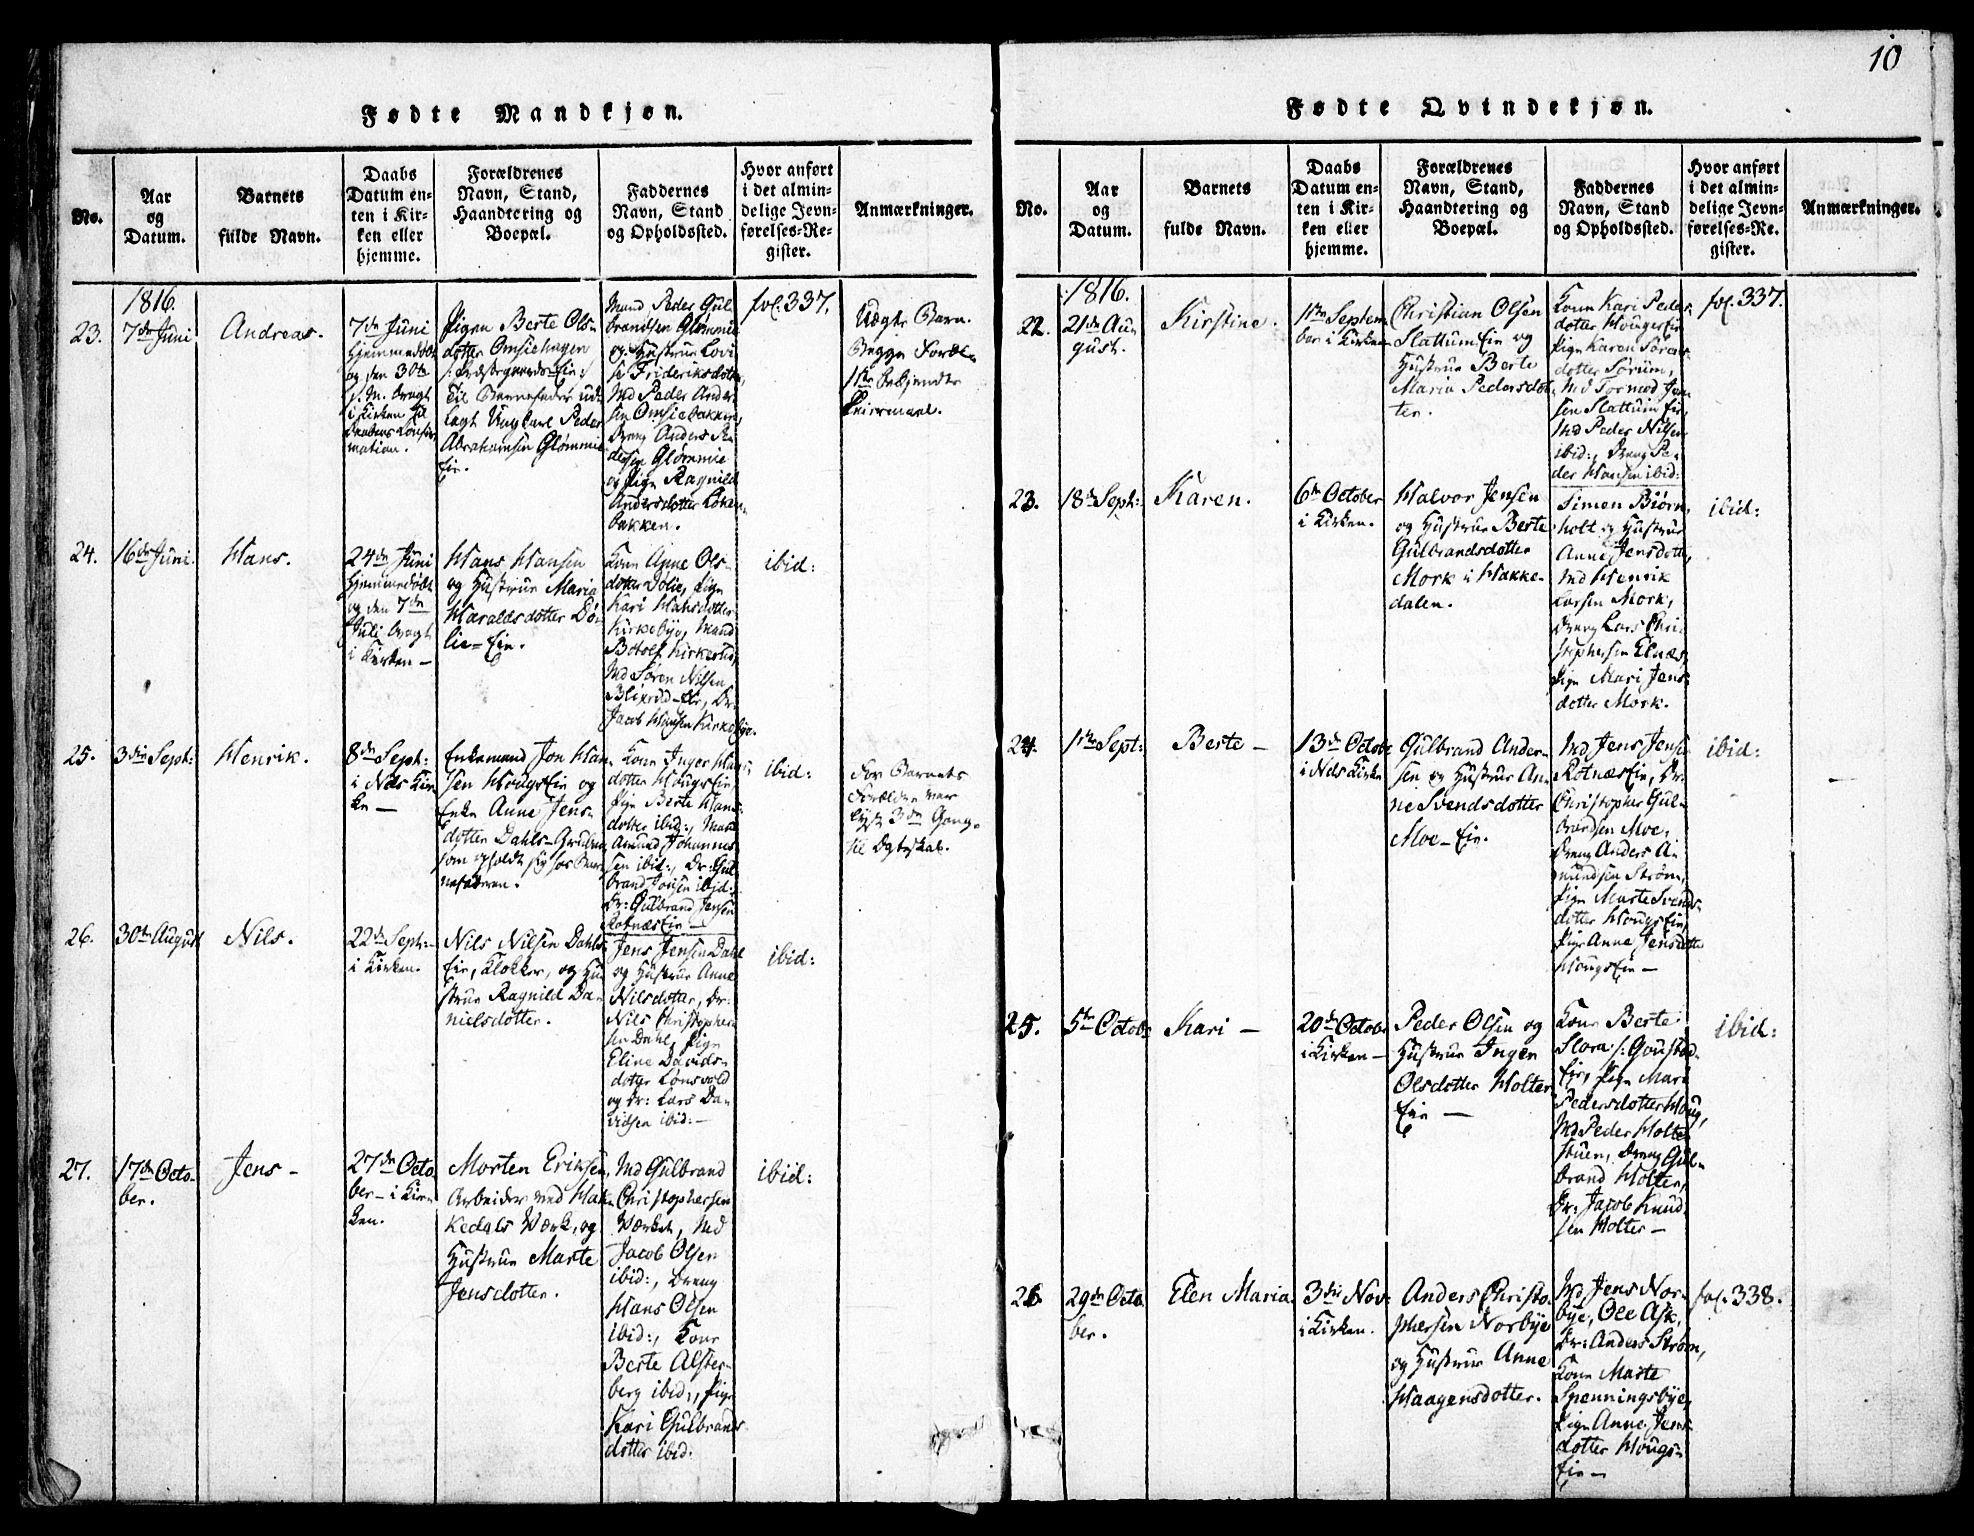 10
Fødte Mandkjøn.
No.
Aar
og
Datum.
Barnets
fulde Navn.
Daabs
Datum en-
ten i Kir-
ken eller
hjemme.
Forældrenes
Navn, Stand,
Haandtering og
Boepæl.
Faddernes
Navn, Stand
og Opholdssted.
Hvor anført
i det almin-
delige Jevn-
førelses-Re-
gister.
Anmærkninger.
1816.
23.
7de Juni
Andreas.
7de Juni
hjemmedøbt
og den 30te
s. M. bragt
i Kirken til
Daabens Confir-
mation.
Pigen Berte Ols-
dotter Omsiehagen
/: Præstegaards-Eie,
til Barnefader ud-
lagt Ungkarl Peder
Abrahamsen Glømmie
Eie.
Mand Peder Gul-
brandsen Glømmie
og Hustrue Lovi-
se Frideriksdotter,
Md Peder Ander-
sen Omsiebakken,
Dreng Anders Pe-
dersen Glømmie
og Pige Ragnild
Andersdotter
bakken.
fol. 337.
Uægte Barn.
Begge Foræl-
1ste bekjendte
Leiermaal.
24.
16de Juni.
Hans.
24de Juni
hjemmedøbt
og den 7de
Juli bragt
i Kirken —
Hans Hansen
og Hustrue Maria
Haraldsdotter Dø-
lie-Eie.
Kone Anne Ols-
dotter Dølie, Pige
Kari Hansdotter
Kirkebye, Mand
Botolf Kirkerud,
Md Søren Nilsen
Bliksrud-Eie, Dr:
Jacob Hansen Kirkebye.
ibid:
25.
3die Sept:
Henrik.
8de Sept:
i Nds Kir-
ke —
Enkemand Jon Han-
sen HougsEie og
Enke Anne Jens-
dotter Dahls-Gruben
som opholdt sig hos Bar-
nefaderen.
Kone Inger Hans-
dotter HougsEie,
Pige Berte Hans-
dotter ibid:, Mand
Amund Johannes-
sen ibid:, Dr: Gul-
brand Jonsen ibid:,
Dr: Gulbrand Jensen
RotnæsEie —
ibid:
For Barnets
Forældre var
lyst 3de Gang
til Ægteskab.
26.
30te August
Nils.
22de Sept:
i Kirken.
Nils Nilsen Dahls
Eie, Klokker, og Hu-
strue Ragnild Da-
nielsdotter.
Jens Jensen Dahl
og Hustrue Anne
Nilsdotter, Dr:
Nils Christopher-
sen Dahl, Pige
Eline Davids-
dotter Lønsvold
og Dr: Lars Da-
vidsen ibid:—
ibid:
27.
17de Octo-
ber.
Jens —
27de Octo-
ber — i Kir-
ken.
Morten Eriksen,
Arbeider ved Hak-
kedals Værk, og
Hustrue Marte
Jensdotter.
Md Gulbrand
Christophersen
Værket, Md
Jacob Olsen
ibid:, Dreng
Hans Olsen
ibid:, Kone
Berte Alster-
berg ibid:, Pige
Kari Gulbrands-
dotter ibid:
ibid:
Fødte Qvindekjøn.
No.
Aar
og
Datum.
Barnets
fulde Navn.
Daabs
Datum en-
ten i Kir-
ken eller
hjemme.
Forældrenes
Navn, Stand,
Haandtering og
Boepæl.
Faddernes
Navn, Stand
og Opholdssted.
Hvor anført
i det almin-
delige Jevn-
førelses-Re-
gister.
Anmærkninger.
1816.
22.
21de Au-
gust.
Kirstine.
1ste Septem-
ber i Kirken
Christian Olsen
Slattum Eie og
Hustrue Berte
Maria Pedersdot-
ter.
Kone Kari Peders-
dotter HougsEie,
Pige Karen Sørens-
dotter Sørum,
Md Tormod Jen-
sen Slattum Eie,
Md Peder Nilsen
ibid:, Dreng Pe-
der Hansen ibid:
fol. 337.
23.
18de Sept:
Karen.
6te October
i Kirken.
Halvor Jensen
og Hustrue Berte
Gulbrandsdotter
Mork i Hakke-
dalen.
Simen Biørn-
holt og Hustrue
Anne Jensdotter,
Md Henrik
Larsen Mork,
Dreng Lars Chri-
stophersen Elnæs,
Pige Mari Jens-
dotter Mork.
ibid:
24.
11te Sept:
Berte —
13de Octobr
i Nds Kirke
Gulbrand Ander-
sen og Hustrue An-
ne Svendsdotter
Moe-Eie.
Md Jens Jensen
RotnæsEie, Dr:
Christopher Gul-
brandsen Moe,
Dreng Anders A-
mundsen Strøm,
Pige Marte Svends-
dotter HougsEie,
Pige Anne Jensdotter
HougsEie —
ibid:
25.
5te Octobr
Kari —
20de Octobr
i Kirken —
Peder Olsen og
Hustrue Inger
Olsdotter Holter
Eie —
Kone Berte
Flora /: Goustad-
Eie, Pige Mari
Pedersdotter Houg,
Md Peder Holter
stuen, Dreng Gul-
brand Holter,
Dr: Jacob Knud-
sen Holter —
ibid:
26.
29de Octo-
ber.
Elen Maria.
3die Nov:
i Kirken.
Anders Christo-
phersen Norbye
og Hustrue Anne
Haagensdotter.
Md Jens Nor-
bye, Ole Ask,
Dr: Anders Strøm,
Kone Marte
Spenningsbye,
Pige Anne Jens-
dotter Hougs-
Eie —
fol. 338.